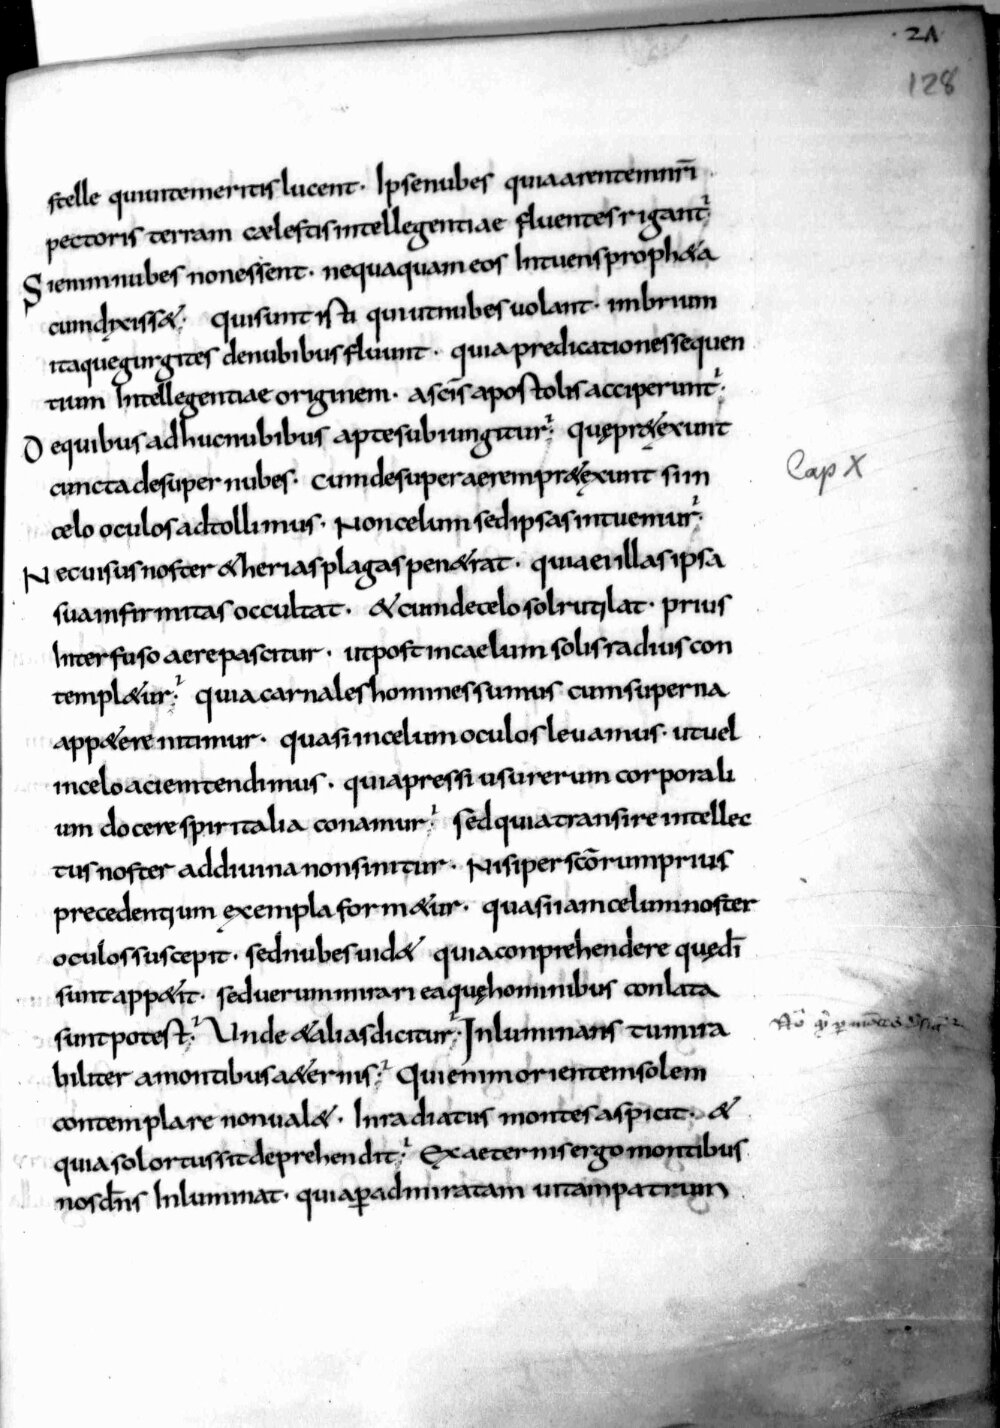 · 21
128
stelle quiuitemeritis lucent· Ipsenubes quiaarentemnr̄i
pectoris terram cælestisintellegentiae fluentesrigant·
Sienimnubes nonessent· nequaquameos Intuensproph&a
cumdixiss&· Quisunt isti quiutnubesuolant· imbrium
itaquegurgites denubibusfluunt· quiapredicationessequen
tium Intellegentiae originem· ascīsapostolisacciperunt·
Dequibusadhucnubibus aptesubiungitur· quępr&exunt
cunctadesuper nubes· cumdesuperaerempr&exunt siin
celo oculosadtollimus· Noncelumsedipsasintuemur·
Necuisusnoster &heriasplagaspen&rat· quiaeiillasipsa
suainfirmitas occultat· &cumdecelosolrutilat· prius
Interfusoaerepascitur· utpostincaelumsolisradius con
templ&ur· quiacarnaleshominessumus cumsuperna
app&ere nitimur· quasiincelumoculosleuamus· utuel
inceloaciemtendimus· quiapressi usurerum corporali
um docerespiritalia conamur· sedquiatransire intellec
tusnoster addiuina nonsinitur· Nisiperscōrumprius
precedentium exemplaform&ur· quasiiamcelumnoster
oculossuscepit· sednubesuid& quiaconprehendere quędī
suntapp&it· seduerummirari eaquęhominibus conlata
suntpotest· Unde &aliasdicitur· Inluminans tumira
biliter amontibusa&ernis· Quienimorientemsolem
contemplare nonual&· Inradiatus montesaspicit· &
quiasolortussitdeprehendit· Exaeternisergomontibus
nosdn̄s Inluminat· quiaꝑadmiratam uitampatrum
Cap X